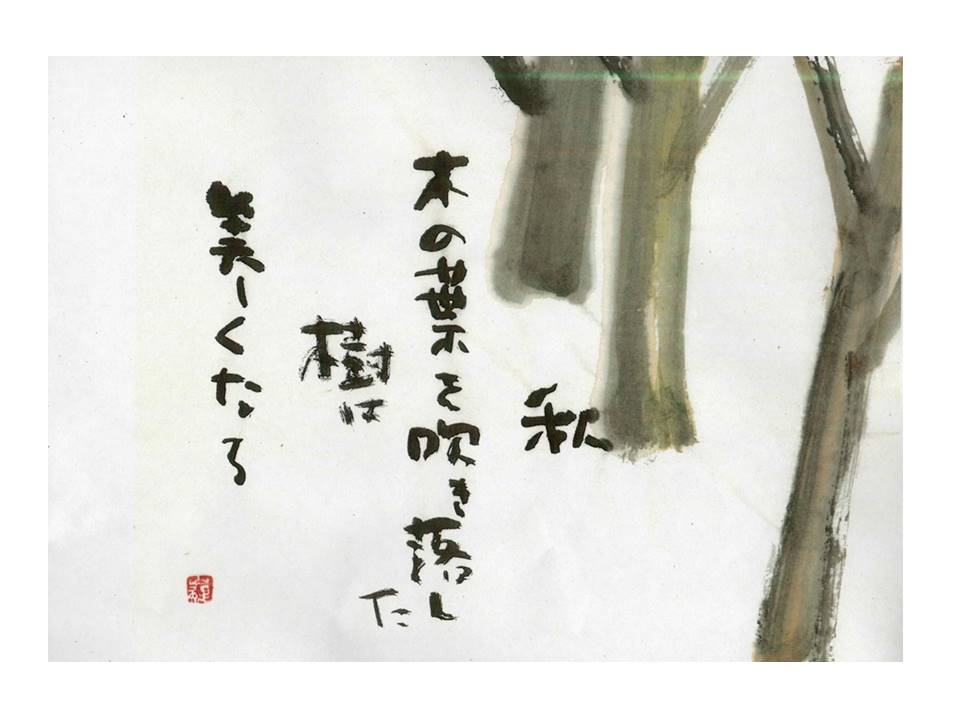 秋
木の葉を吹き落し
た
樹は
美しくなる